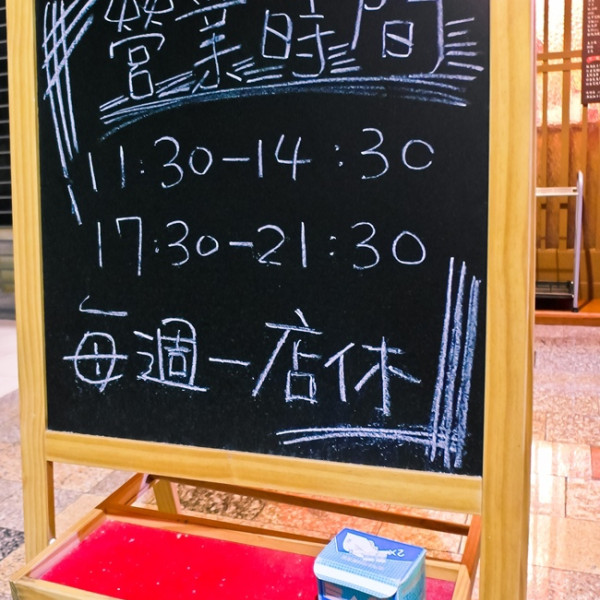 營業時間
11:30-14:30
17:30-21:30
每週一店休